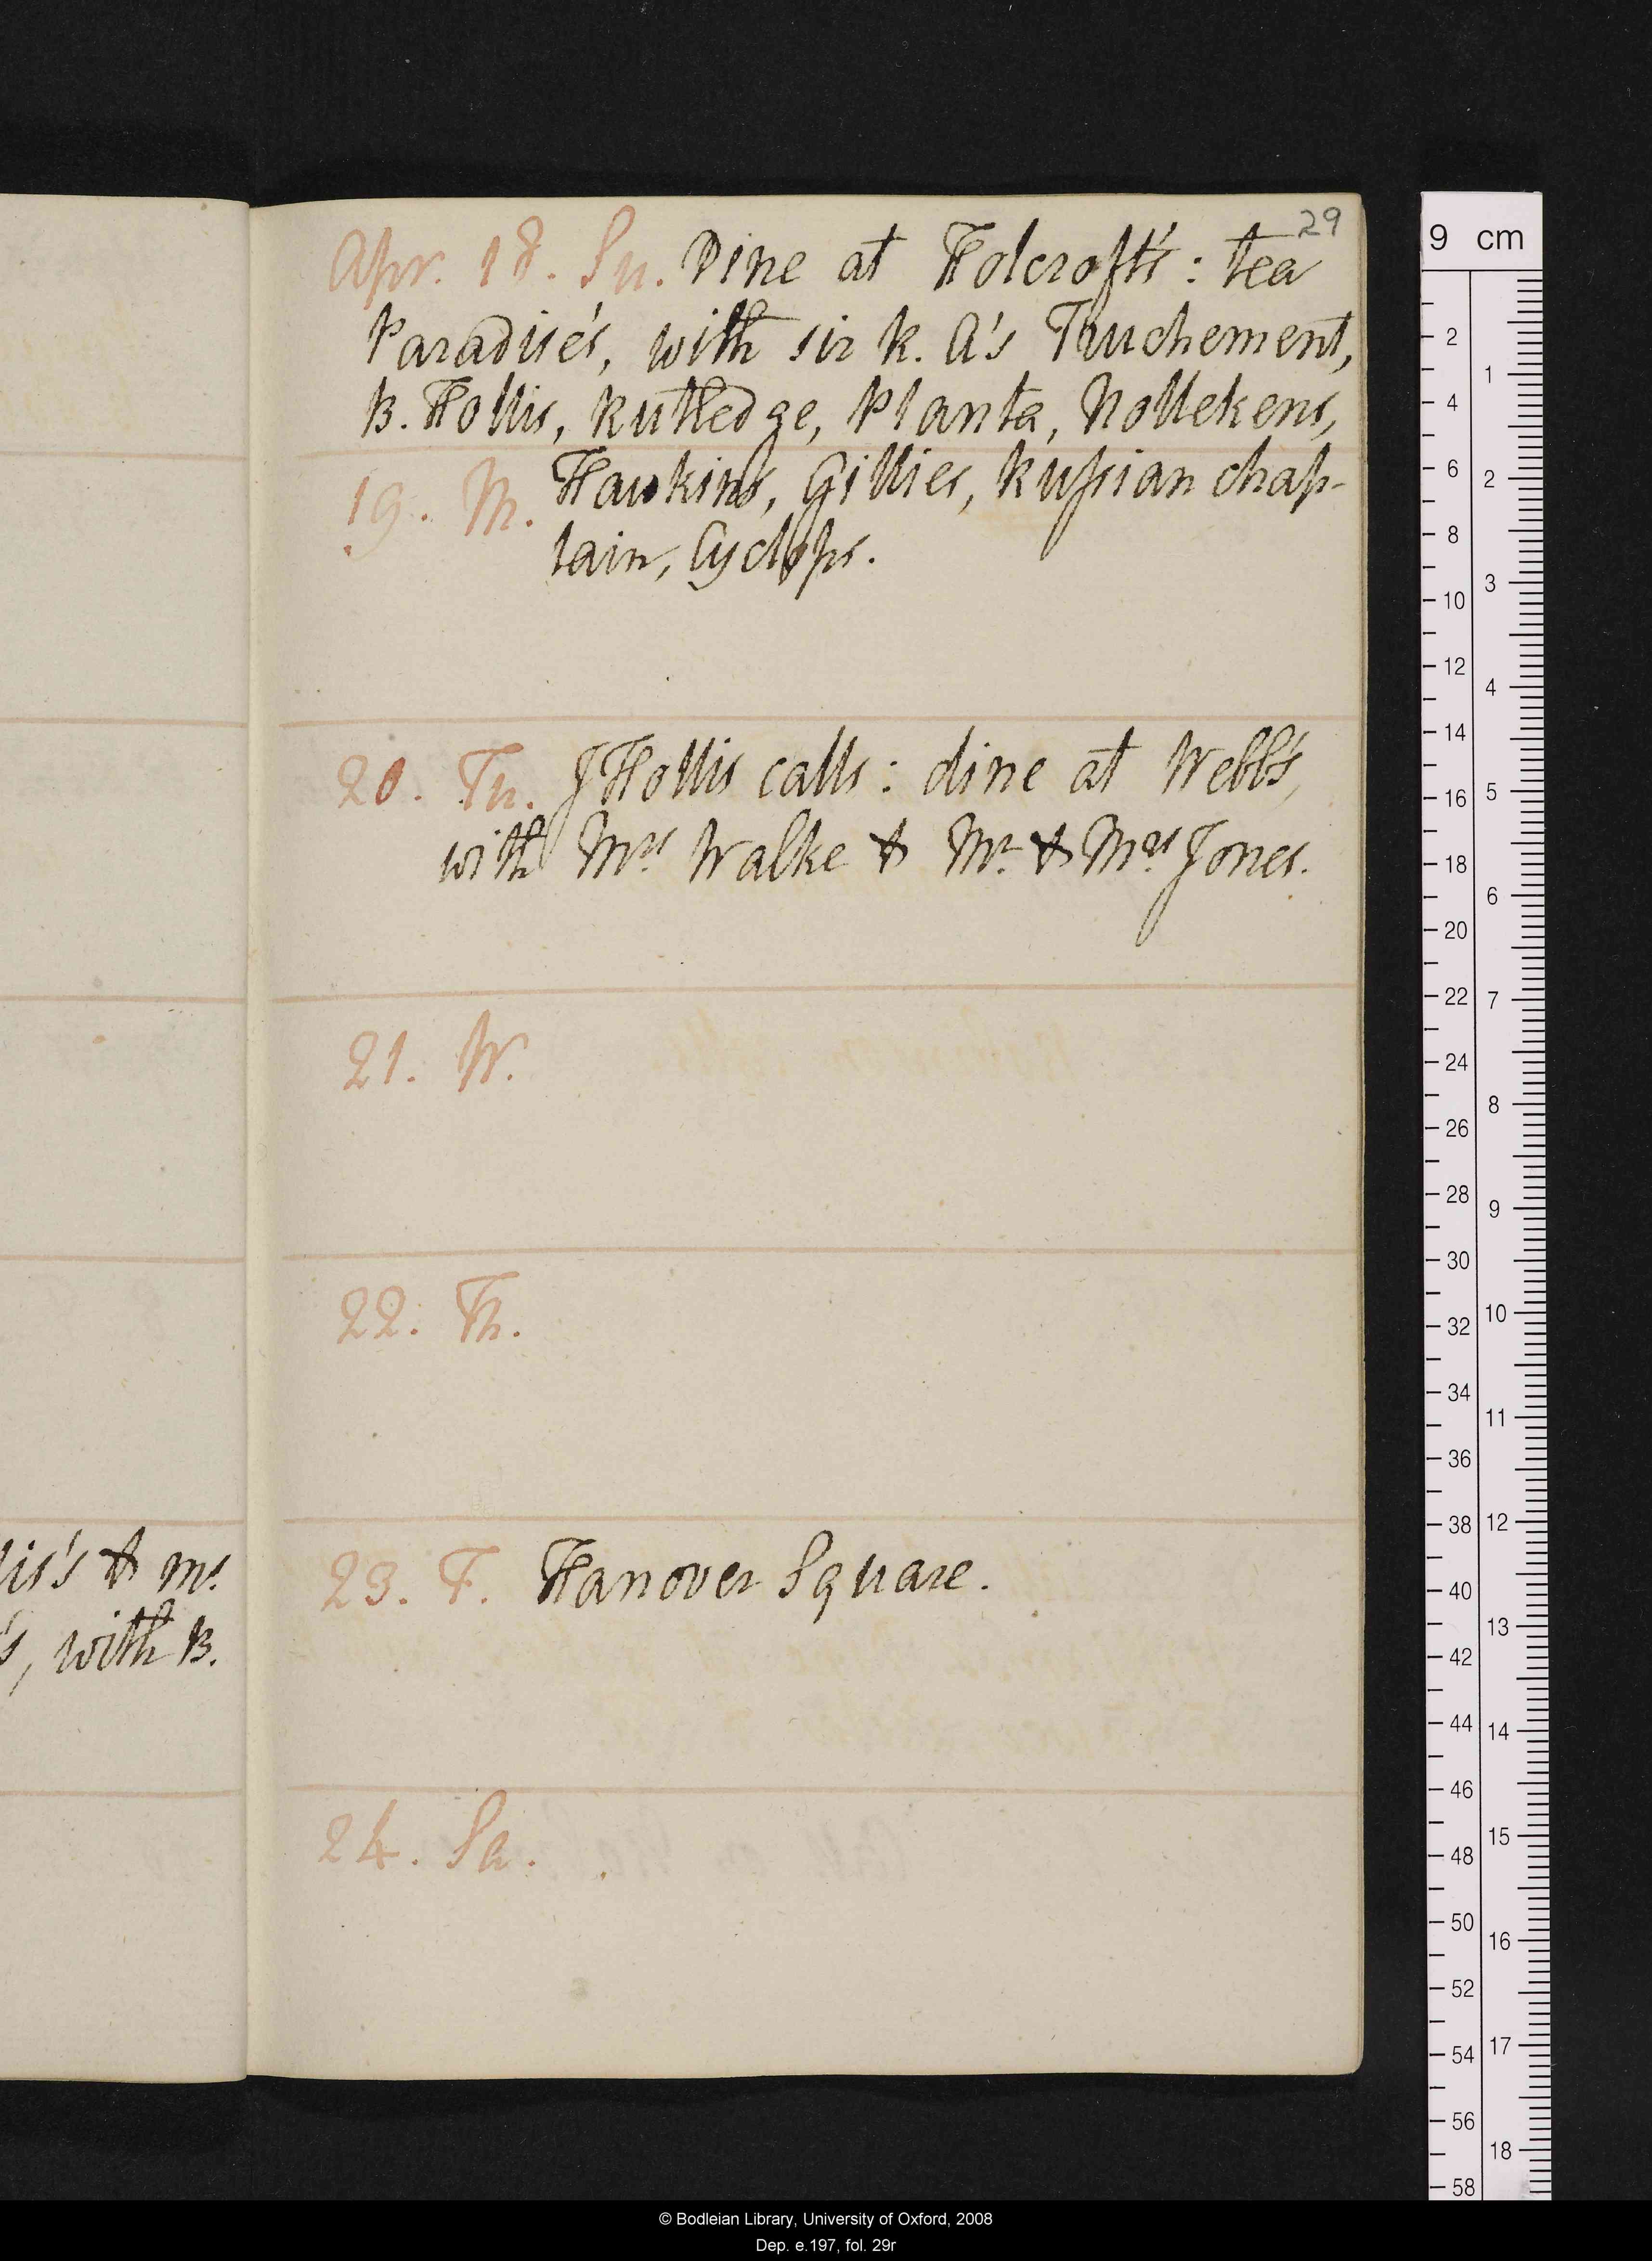 29
Apr. 18. Su. Dine at Holcroft's: tea
Paradise's, with sir R. A's Truchement,
B. Hollis, Rutledge, Planta, Nollekens,
19. M. Hawkins, Gillies, Russian chap-
lain, Cyclops.
20. Tu. J Hollis calls: dine at Webb's,
with Mrs Walke & Mr. & Mrs Jones.
21. W.
22. Th.
lis's & mr.
's, with B.
23. F. Hanover Square.
24. Sa.
9 cm
2
4
6
8
10
12
14
16
18
20
22
24
26
28
30
32
34
36
38
40
42
44
46
48
50
52
54
56
58
1
2
3
4
5
6
7
8
9
10
11
12
13
14
15
16
17
18
© Bodleian Library, University of Oxford, 2008
Dep. e.197, fol. 29r